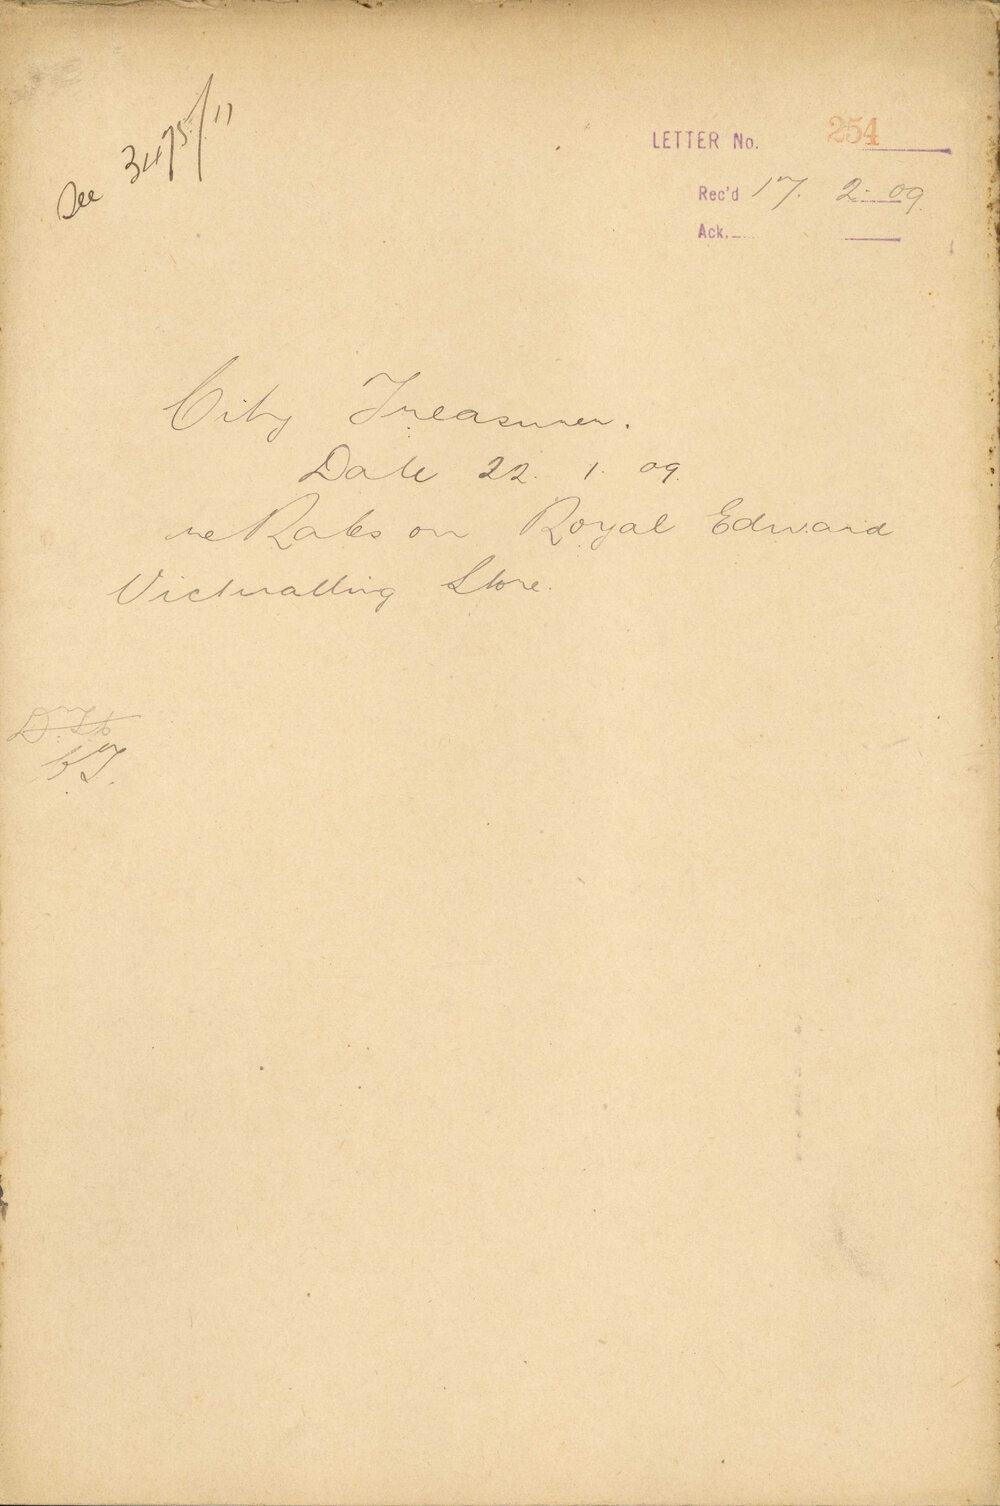 See 3475/11
LETTER No. 254
Rec'd 17. 2. 09.
Ack.
City Treasurer.
Date 22. 1. 09.
re Rates on Royal Edward
Victualling Store.